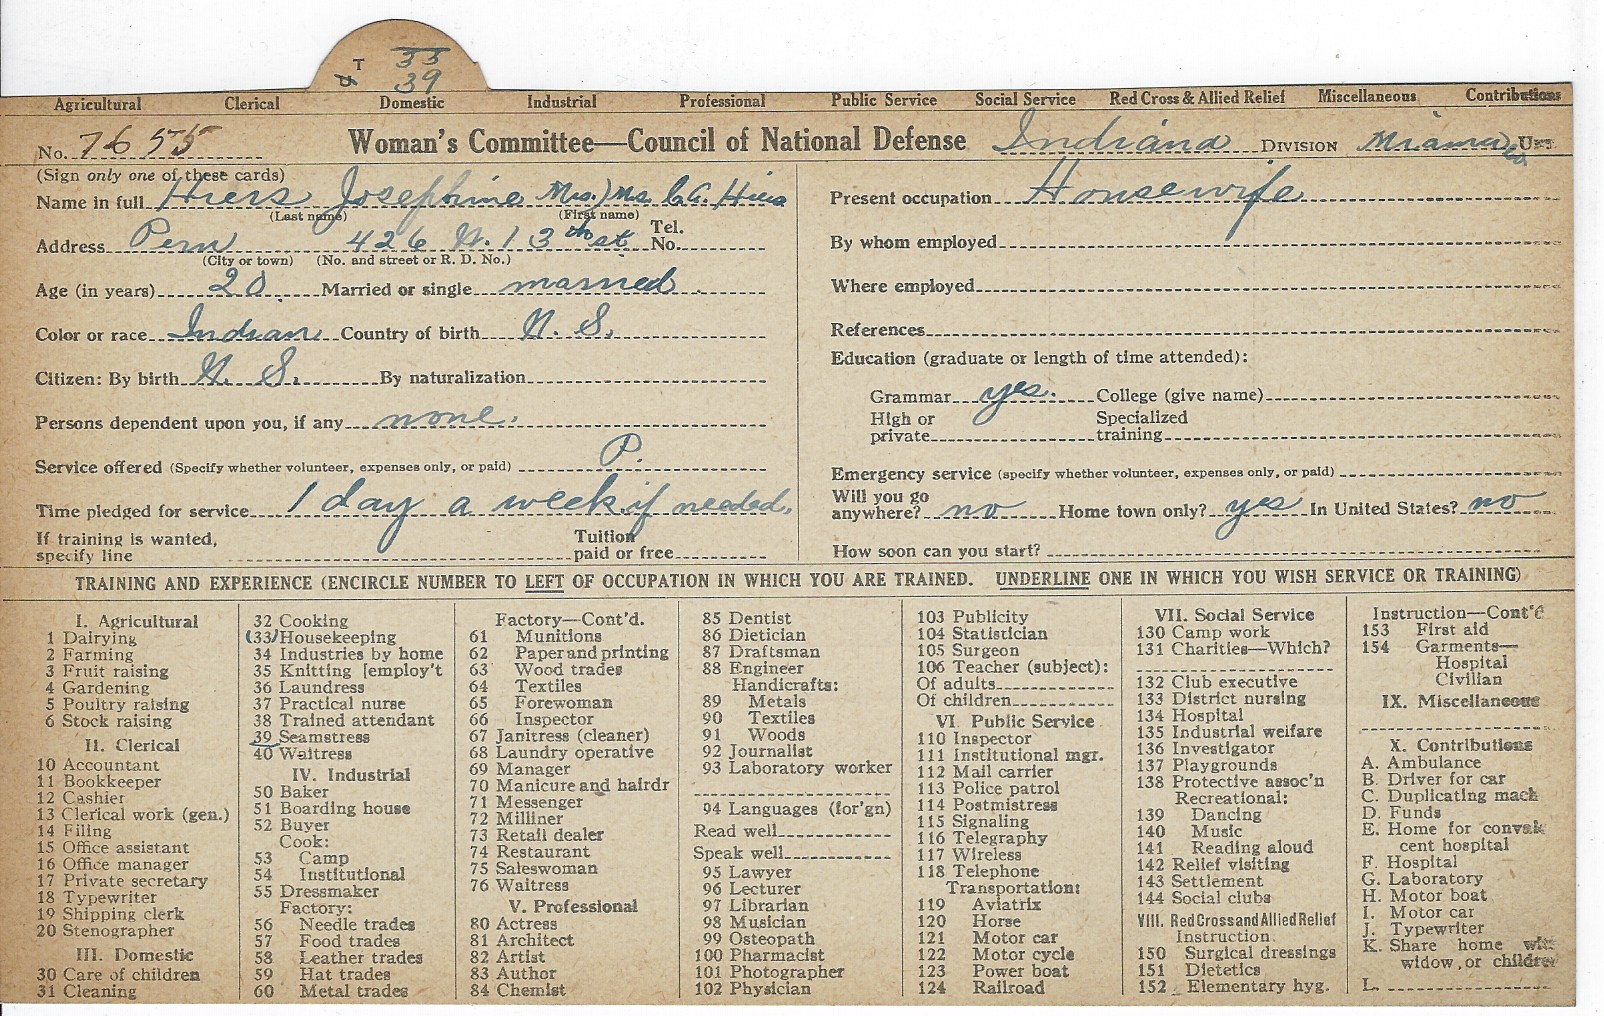 T 33
39
Agricultural Clerical Domestic Industrial Professional Public Service Social Service Red Cross & Allied Relief Miscellaneous Contributions
No. 7655 Woman's Committee—Council of National Defense Indiana DIVISION Miami Co. UNIT
(Sign only one of these cards)
Name in full Hiers Josephine Mrs.) Mrs. C.A. Hiers
(Last name) (First name)
Address Peru 426 W. 13th st. Tel. No.
(City or town) (No. and street or R. D. No.)
Age (in years) 20 Married or single married
Color or race Indian Country of birth U. S.
Citizen: By birth U. S. By naturalization
Persons dependent upon you, if any none.
Service offered (Specify whether volunteer, expenses only, or paid) P.
Time pledged for service 1 day a week if needed.
If training is wanted, specify line Tuition paid or free
Present occupation Housewife
By whom employed
Where employed
References
Education (graduate or length of time attended):
Grammar yes. College (give name)
High or private Specialized training
Emergency service (specify whether volunteer, expenses only, or paid)
Will you go anywhere? no Home town only? yes In United States? no
How soon can you start?
TRAINING AND EXPERIENCE (ENCIRCLE NUMBER TO LEFT OF OCCUPATION IN WHICH YOU ARE TRAINED. UNDERLINE ONE IN WHICH YOU WISH SERVICE OR TRAINING)
I. Agricultural
1 Dairying
2 Farming
3 Fruit raising
4 Gardening
5 Poultry raising
6 Stock raising
II. Clerical
10 Accountant
11 Bookkeeper
12 Cashier
13 Clerical work (gen.)
14 Filing
15 Office assistant
16 Office manager
17 Private secretary
18 Typewriter
19 Shipping clerk
20 Stenographer
III. Domestic
30 Care of children
31 Cleaning
32 Cooking
(33) Housekeeping
34 Industries by home
35 Knitting [employ't
36 Laundress
37 Practical nurse
38 Trained attendant
39 Seamstress
40 Waitress
IV. Industrial
50 Baker
51 Boarding house
52 Buyer
Cook:
53 Camp
54 Institutional
55 Dressmaker
Factory:
56 Needle trades
57 Food trades
58 Leather trades
59 Hat trades
60 Metal trades
Factory—Cont'd.
61 Munitions
62 Paper and printing
63 Wood trades
64 Textiles
65 Forewoman
66 Inspector
67 Janitress (cleaner)
68 Laundry operative
69 Manager
70 Manicure and hairdr
71 Messenger
72 Milliner
73 Retail dealer
74 Restaurant
75 Saleswoman
76 Waitress
V. Professional
80 Actress
81 Architect
82 Artist
83 Author
84 Chemist
85 Dentist
86 Dietician
87 Draftsman
88 Engineer
Handicrafts:
89 Metals
90 Textiles
91 Woods
92 Journalist
93 Laboratory worker
94 Languages (for'gn)
Read well
Speak well
95 Lawyer
96 Lecturer
97 Librarian
98 Musician
99 Osteopath
100 Pharmacist
101 Photographer
102 Physician
103 Publicity
104 Statistician
105 Surgeon
106 Teacher (subject):
Of adults
Of children
VI. Public Service
110 Inspector
111 Institutional mgr.
112 Mail carrier
113 Police patrol
114 Postmistress
115 Signaling
116 Telegraphy
117 Wireless
118 Telephone
Transportation:
119 Aviatrix
120 Horse
121 Motor car
122 Motor cycle
123 Power boat
124 Railroad
VII. Social Service
130 Camp work
131 Charities—Which?
132 Club executive
133 District nursing
134 Hospital
135 Industrial welfare
136 Investigator
137 Playgrounds
138 Protective assoc'n
Recreational:
139 Dancing
140 Music
141 Reading aloud
142 Relief visiting
143 Settlement
144 Social clubs
VIII. Red Cross and Allied Relief
Instruction
150 Surgical dressings
151 Dietetics
152 Elementary hyg.
Instruction—Cont'd
153 First aid
154 Garments—
Hospital
Civilian
IX. Miscellaneous
X. Contributions
A. Ambulance
B. Driver for car
C. Duplicating mach
D. Funds
E. Home for convales
cent hospital
F. Hospital
G. Laboratory
H. Motor boat
I. Motor car
J. Typewriter
K. Share home with
widow, or children
L.